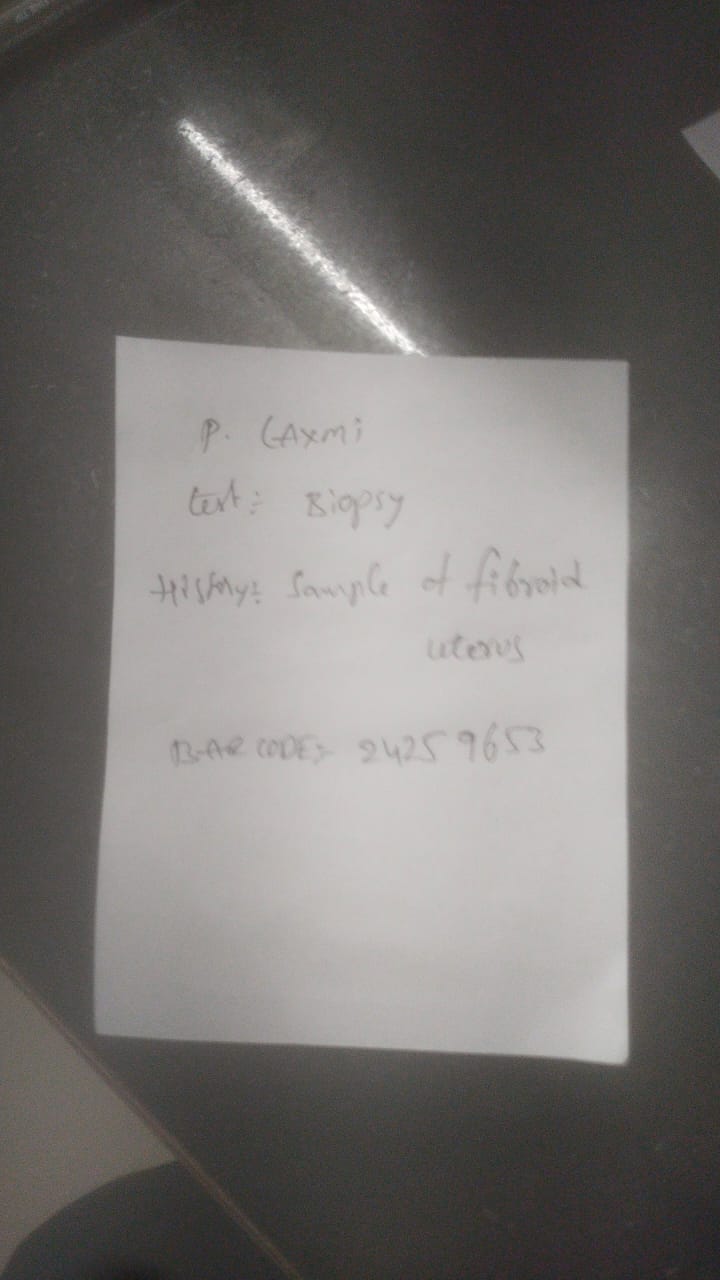 P. LAxmi
test:- Biopsy
History:- Sample of fibroid
uterus
BAR CODE:- 24259653